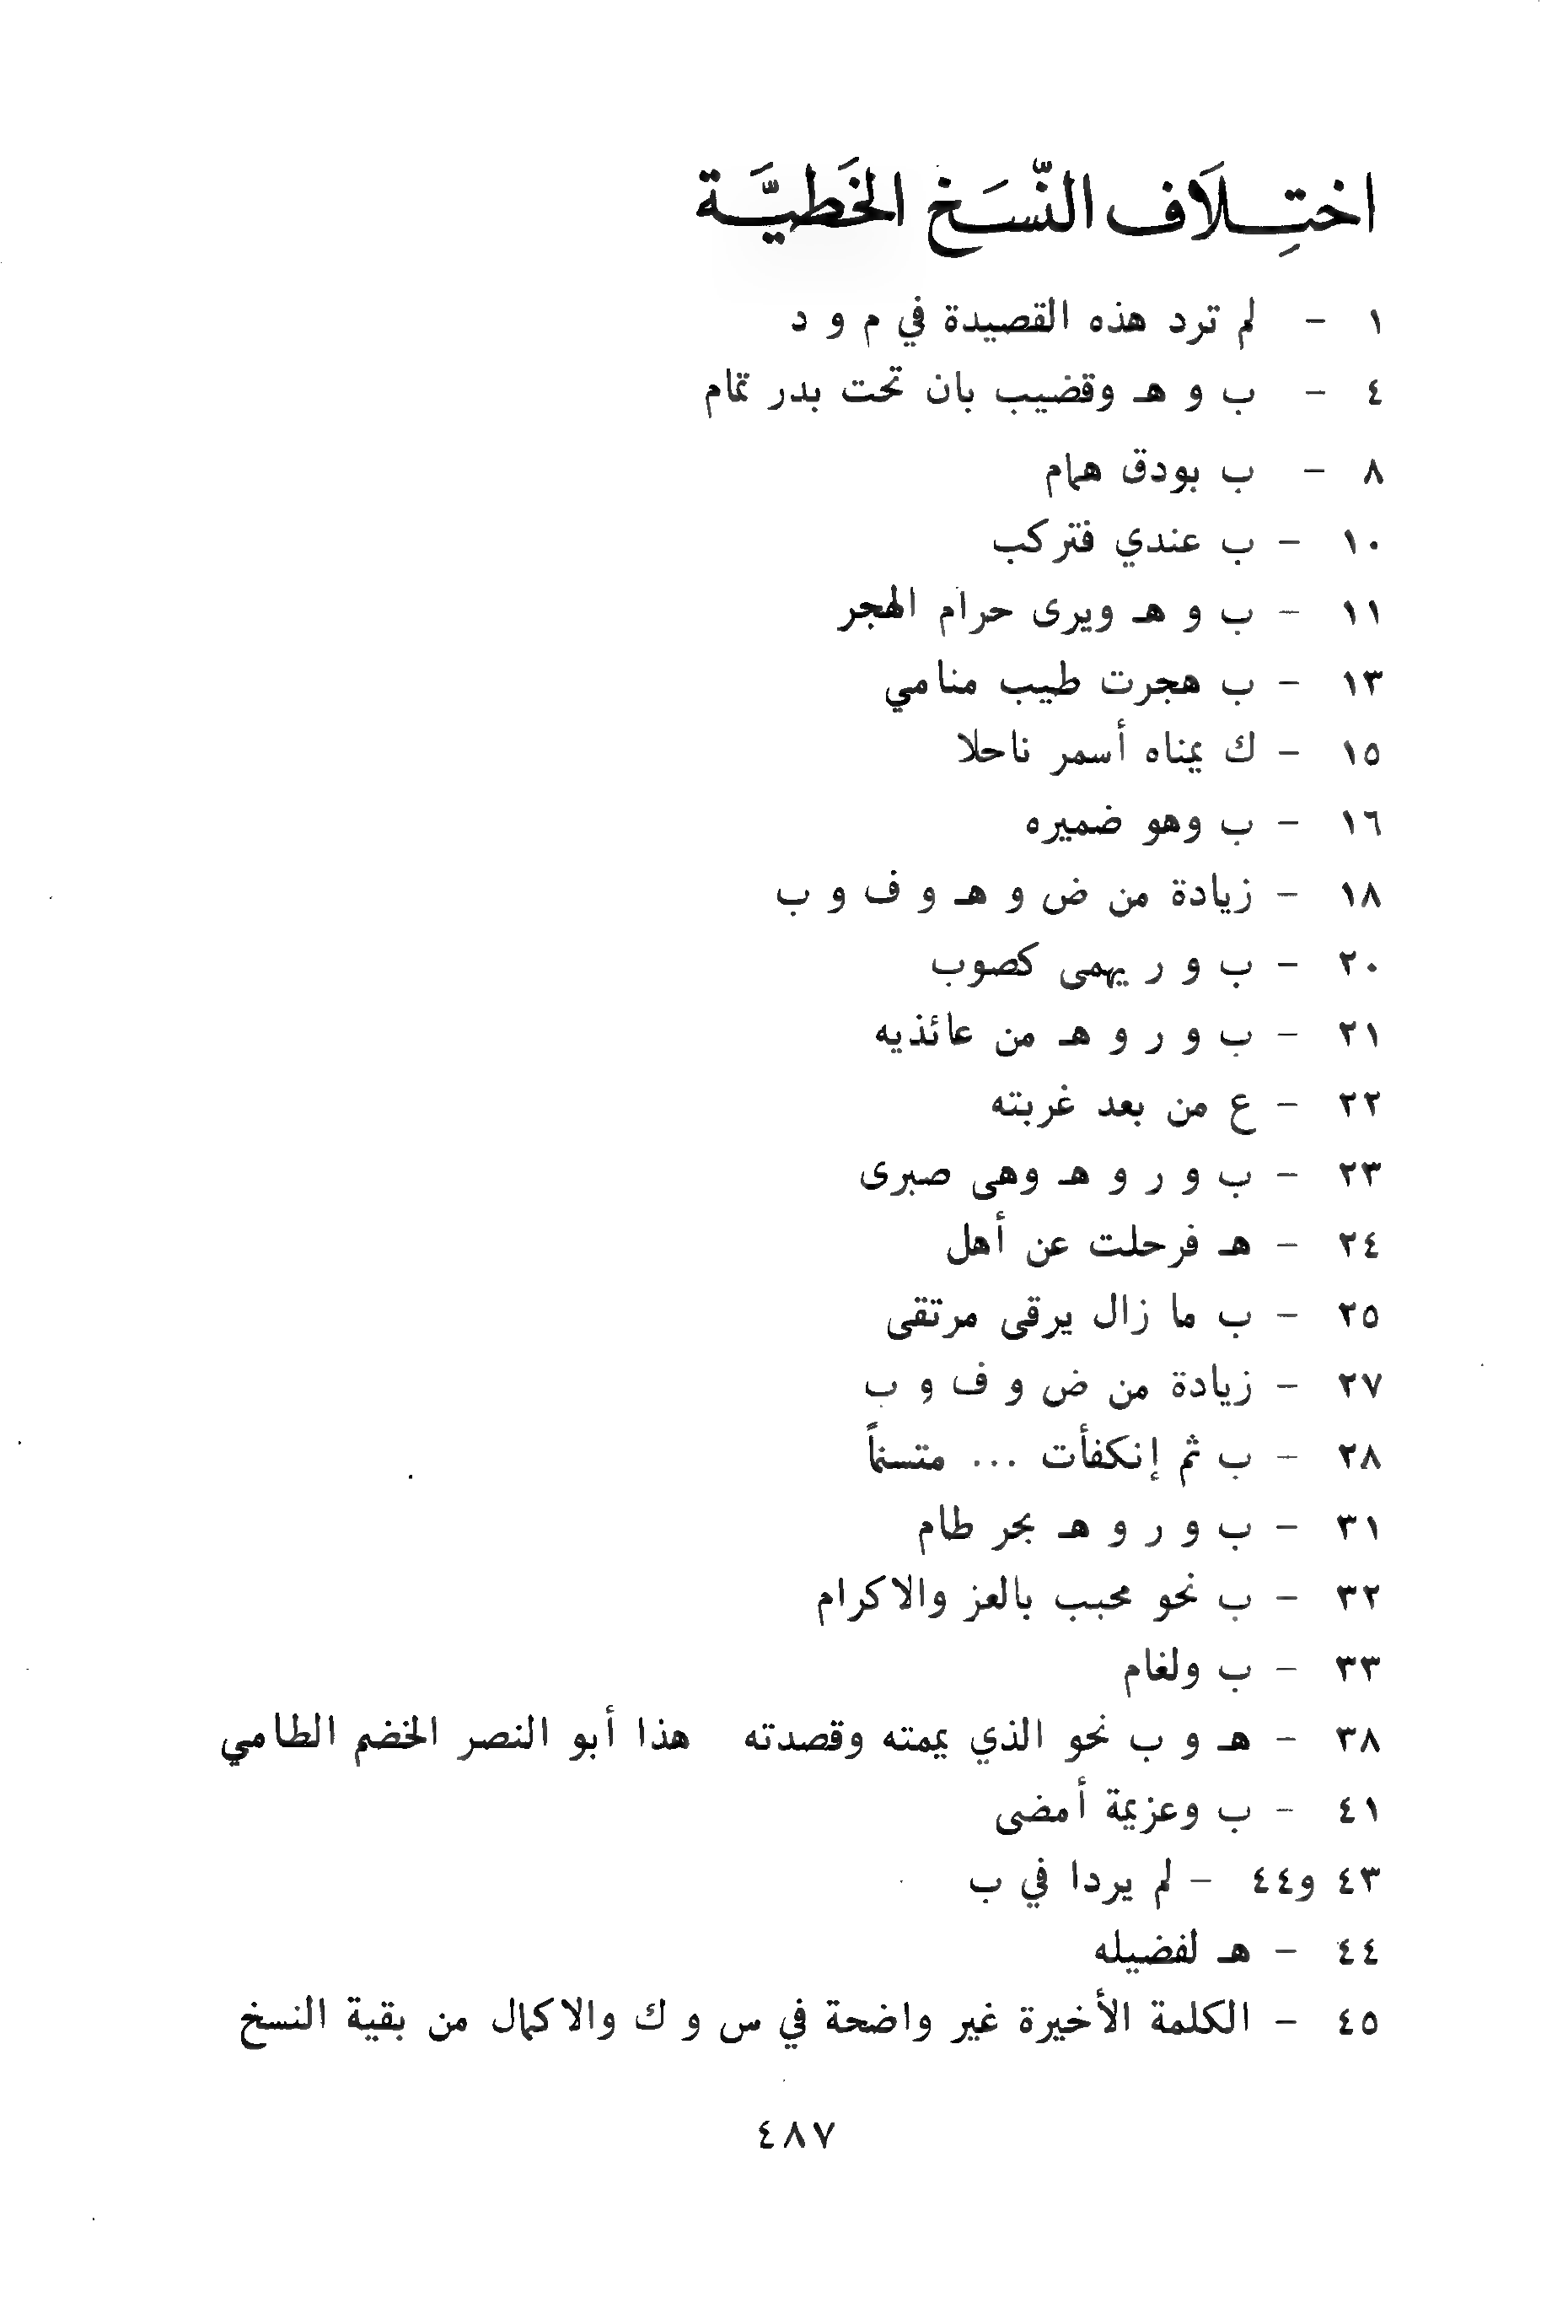 اختِلَاف النّسَخ الخَطيَّة
١ - لم ترد هذه القصيدة في م و د
٤ - ب و هـ وقضيب بان تحت بدر تمام
٨ - ب بودق همام
١٠ - ب عندي فتركب
١١ - ب و هـ ويرى حرام الهجر
١٣ - ب هجرت طيب منامي
١٥ - ك يمناه أسمر ناحلا
١٦ - ب وهو ضميره
١٨ - زيادة من ض و هـ و ف و ب
٢٠ - ب و ر يهمى كصوب
٢١ - ب و ر و هـ من عائذيه
٢٢ - ع من بعد غربته
٢٣ - ب و ر و هـ وهى صبرى
٢٤ - هـ فرحلت عن أهل
٢٥ - ب ما زال يرقى مرتقى
٢٧ - زيادة من ض و ف و ب
٢٨ - ب ثم إنكفأت ... متسنماً
٣١ - ب و ر و هـ بحر طام
٣٢ - ب نحو محبب بالعز والاكرام
٣٣ - ب ولغام
٣٨ - هـ و ب نحو الذي يممته وقصدته هذا أبو النصر الخضم الطامي
٤١ - ب وعزيمة أمضى
٤٣ و٤٤ - لم يردا في ب
٤٤ - هـ لفضيله
٤٥ - الكلمة الأخيرة غير واضحة في س و ك والاكمال من بقية النسخ
٤٨٧